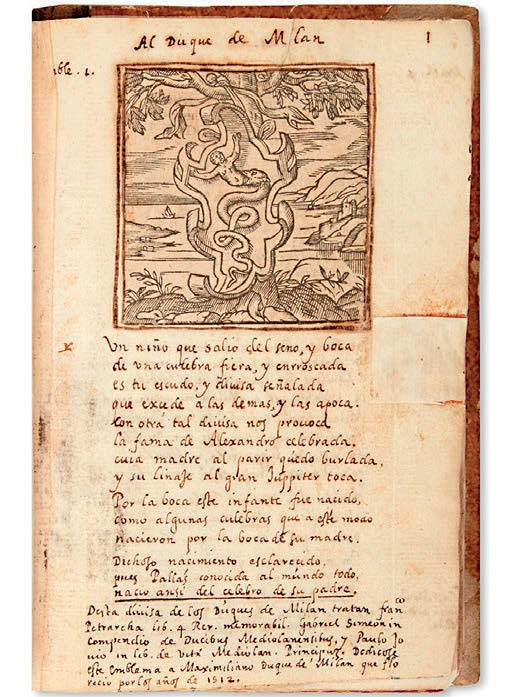 Al Duque de Milan
1
ble. 1.
Un niño que salio del seno, y boca
de una culebra fiera, y enrroscada
es tu escudo, y divisa señalada
que excede a las demas, y las apoca.
Con otra tal divisa nos provoca
la fama de Alexandro celebrada,
cuia madre al parir quedo burlada,
y su linaje al gran Iuppiter toca.
Por la boca este infante fue nacido,
como algunas culebras que a este modo
nacieron por la boca de su madre.
Dichoso nacimiento esclarecido,
pues Pallas conocida al mundo todo,
nacio ansi del celebro de su padre.
Desta divisa de los Duques de Milan tratan franco
Petrarcha lib. 4 Rer. memorabil. Gabriel Simeon in
compendio de Ducibus Mediolanensibus, y Paulo Jo
vio in lib. de vita Mediolan. Principum. Dedicose
este Emblema a Maximiliano Duque de Milan que flo
recio por los años de 1512.